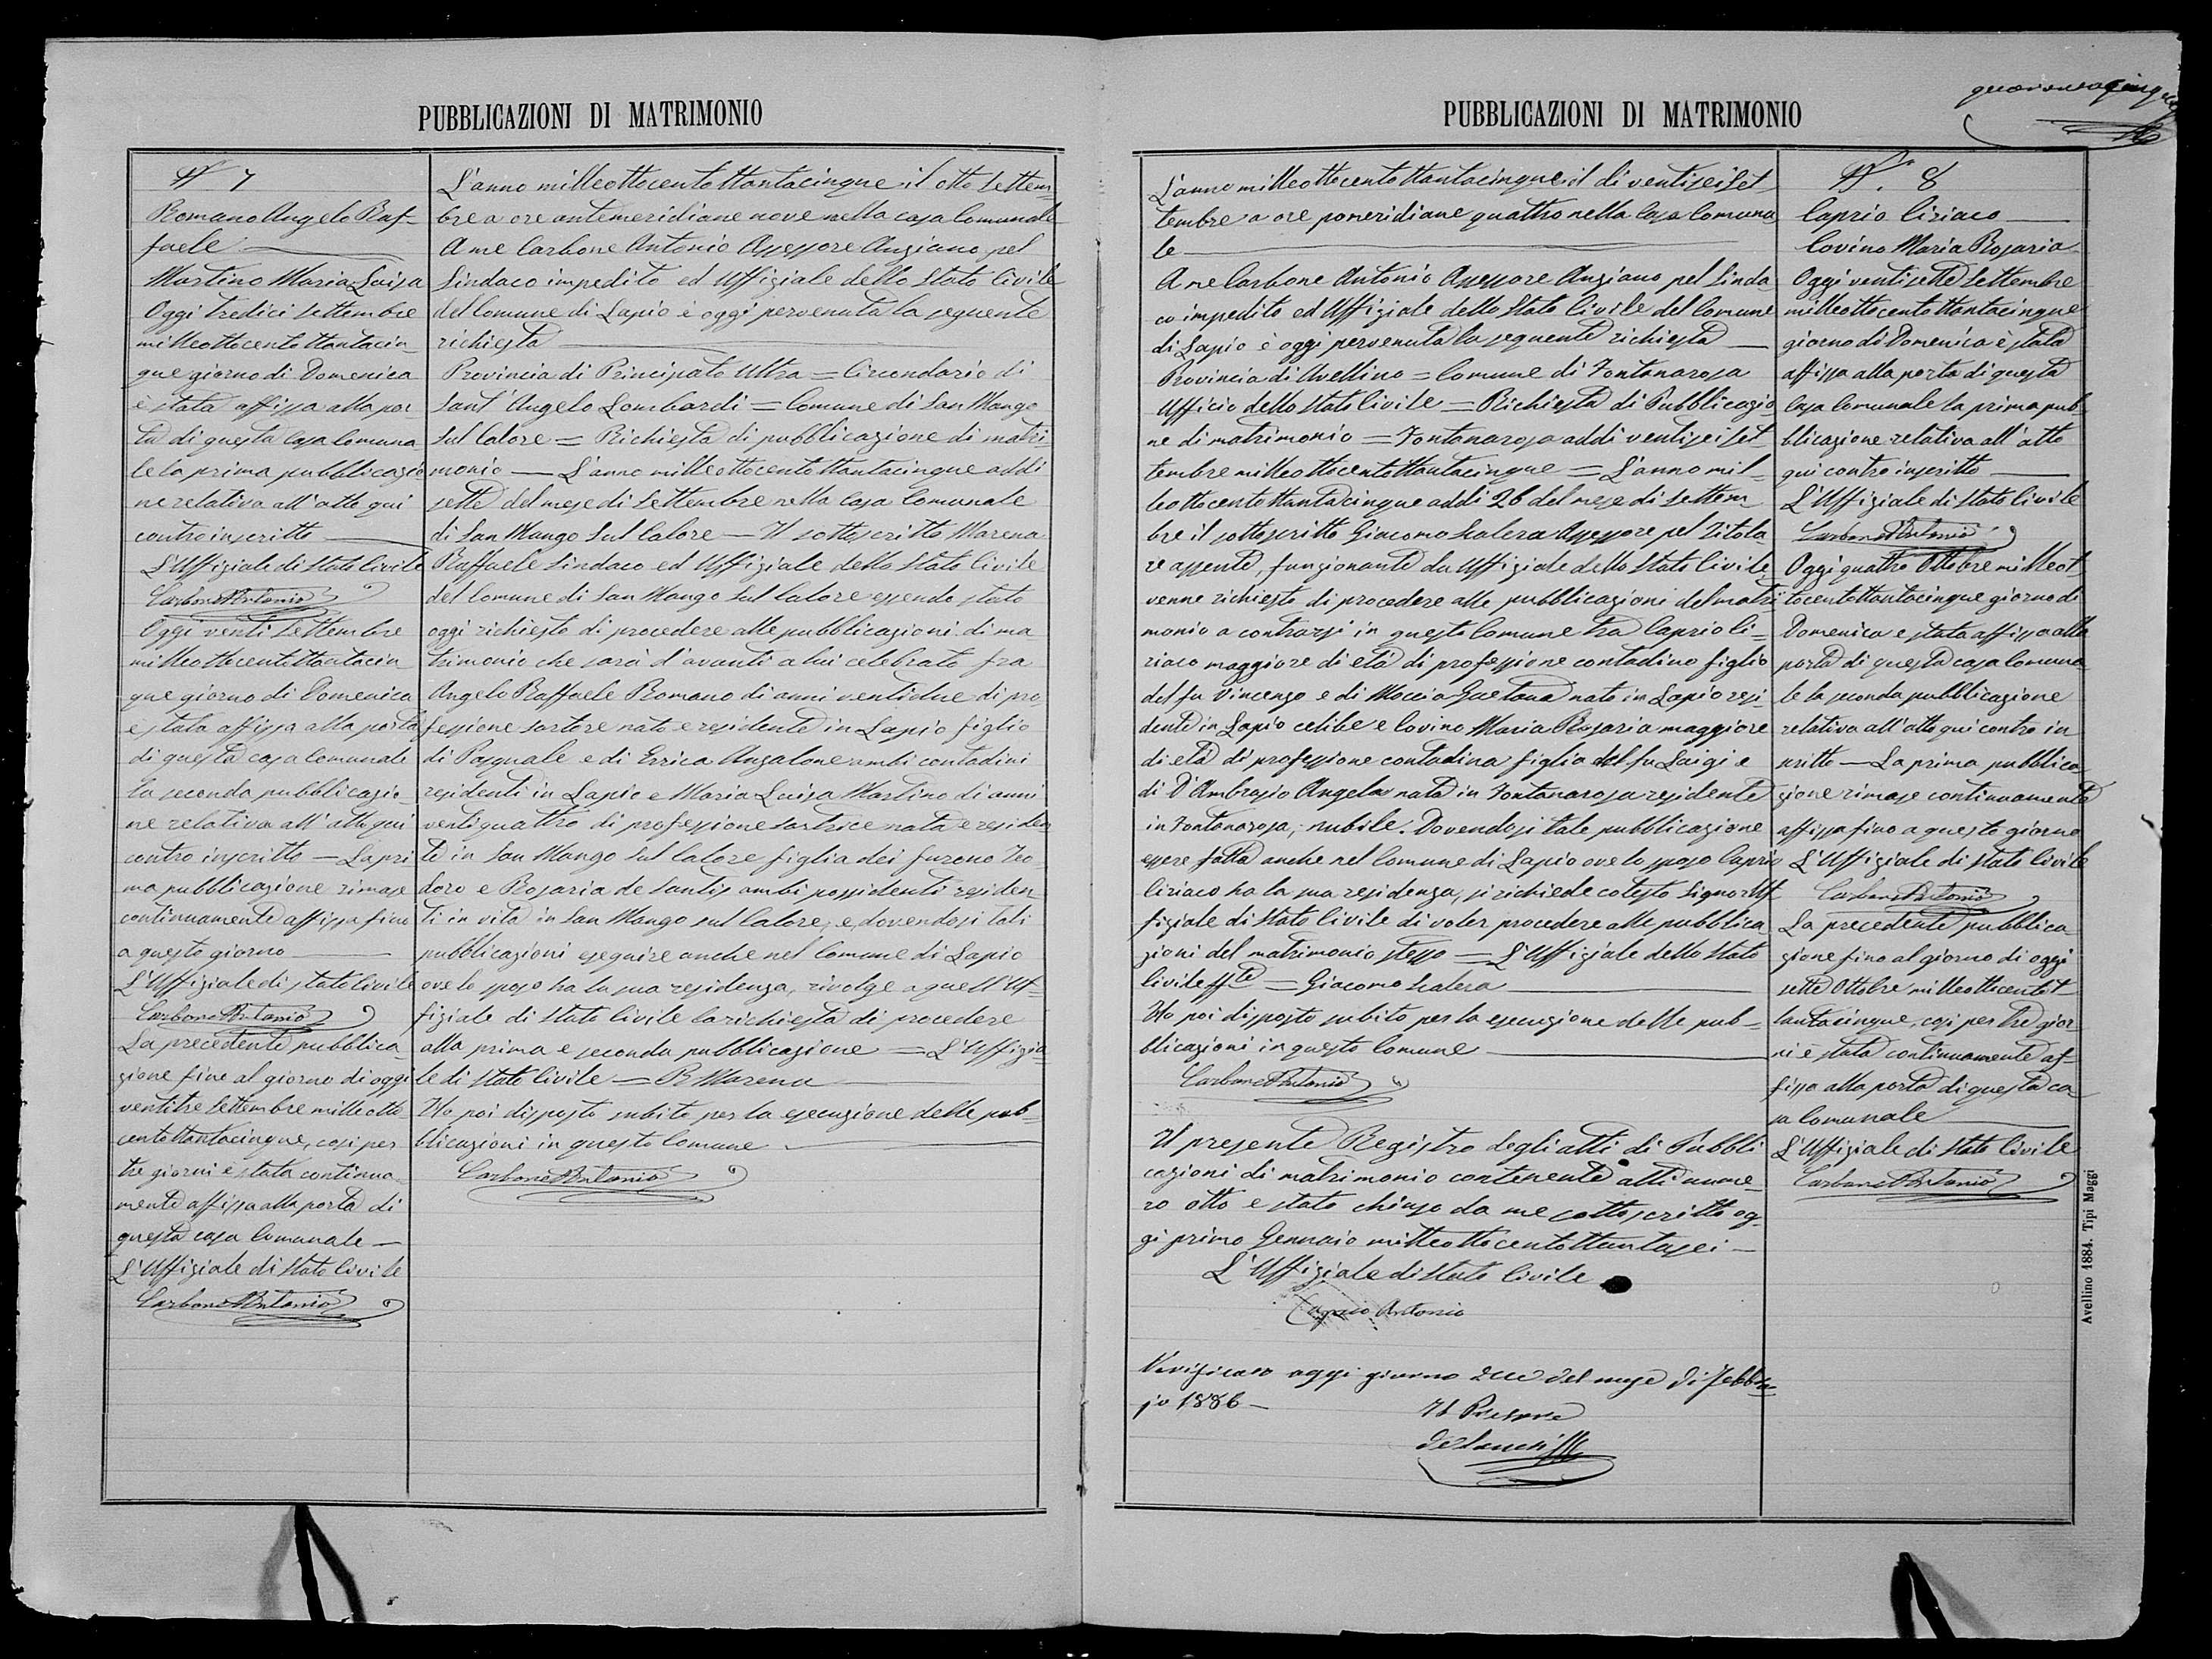 PUBBLICAZIONI DI MATRIMONIO
N 7
Romano Angelo Raf-
faele
Martino Maria Luisa
Oggi tredici settembre
milleottocentottantacin
que giorno di Domenica
è stata affissa alla por
ta di questa casa Comuna
le la prima pubblicazio
ne relativa all'atto qui
controinscritto
L'Uffiziale di Stato Civile
Carbone Antonio
Oggi venti Settembre
milleottocentottantacin
que giorno di Domenica
è stata affissa alla porta
di questa casa Comunale
la seconda pubblicazio-
ne relativa all'atto qui
contro inscritto — La pri
ma pubblicazione rimase
continuamente affissa fino
a questo giorno
L'Uffiziale di stato civile
Carbone Antonio
La precedente pubblica
zione fino al giorno di oggi
ventitre Settembre milleotto
centottantacinque, così per
tre giorni è stata continua
mente affissa alla porta di
questa casa Comunale —
L'Uffiziale di Stato Civile
Carbone Antonio
L'anno milleottocentottantacinque il otto Settem
bre a ore antemeridiane nove nella casa Comunale
A me Carbone Antonio Assessore Anziano pel
Sindaco impedito ed Uffiziale dello Stato Civile
del Comune di Lapio è oggi pervenuta la seguente
richiesta
Provincia di Principato Ultra = Circondario di
Sant'Angelo Lombardi = Comune di San Mango
Sul Calore = Richiesta di pubblicazione di matri
monio — L'anno milleottocentottantacinque addi
sette del mese di Settembre nella Casa Comunale
di San Mango Sul Calore — Il sottoscritto Marena
Raffaele Sindaco ed Uffiziale dello Stato Civile
del Comune di San Mango Sul Calore essendo stato
oggi richiesto di procedere alle pubblicazioni di ma
trimonio che sarà d'avanti a lui celebrato fra
Angelo Raffaele Romano di anni ventidue di pro
fessione sartore nato e residente in Lapio figlio
di Pasquale e di Errica Anzalone ambi contadini
residenti in Lapio e Maria Luisa Martino di anni
ventiquattro di professione sartrice nata e residen
te in San Mango Sul Calore figlia dei furono Teo-
doro e Rosaria de Santis ambi possidenti residen
ti in vita in San Mango sul Calore, e, dovendosi tali
pubblicazioni eseguire anche nel Comune di Lapio
ove lo sposo ha la sua residenza, rivolge a quell'Uf-
fiziale di Stato Civile la richiesta di procedere
alla prima e seconda pubblicazione = L'Uffizia-
le di stato Civile — R Marena
Ho poi disposto subito per la esecuzione delle pub-
blicazioni in questo Comune
Carbone Antonio
PUBBLICAZIONI DI MATRIMONIO
L'anno milleottocentottantacinque il di ventisei Set
tembre a ore pomeridiane quattro nella Casa Comuna
le
A me Carbone Antonio Assessore Anziano pel Sinda
co impedito ed Uffiziale dello Stato Civile del Comune
di Lapio è oggi pervenuta la seguente richiesta
Provincia di Avellino = Comune di Fontanarosa
Ufficio dello Stato Civile = Richiesta di Pubblicazio
ne di matrimonio = Fontanarosa addi ventisei set
tembre milleottocentottantacinque = L'anno mil-
leottocentottantacinque addi 26 del mese di Settem
bre il sottoscritto Giacomo Scalera Assessore pel Titola-
re assente, funzionante da Uffiziale dello Stato Civile
venne richiesto di procedere alle pubblicazioni del matri
monio a contrarsi in questo Comune tra Caprio Ci-
riaco maggiore di età di professione contadino figlio
del fu Vincenzo e di Moccia Gaetana nato in Lapio resi
dente in Lapio celibe e Covino Maria Rosaria maggiore
di età di professione contadina figlia del fu Luigi e
di D'Ambrosio Angela nata in Fontanarosa residente
in Fontanarosa, nubile. Dovendosi tale pubblicazione
essere fatta anche nel Comune di Lapio ove lo sposo Caprio
Ciriaco ha la sua residenza, si richiede cotesto Signor Uf
fiziale di Stato Civile di voler procedere alle pubblica
zioni del matrimonio stesso = L'Uffiziale dello Stato
Civile ff.te = Giacomo Scalera
Ho poi disposto subito per la esecuzione delle pub-
blicazioni in questo Comune
Carbone Antonio
Il presente Registro degli atti di Pubbli
cazioni di matrimonio contenente atti nume-
ro otto e stato chiuso da me sottoscritto og-
gi primo Gennaio milleottocentottantasei —
L'Uffiziale di Stato Civile
Caprio Antonio
Verificato oggi giorno del mese di Febbra-
jo 1886 —
Il Pretore
N. 8
Caprio Ciriaco
Covino Maria Rosaria
Oggi ventisette Settembre
milleottocentottantacinque
giorno di Domenica è stata
affissa alla porta di questa
Casa Comunale la prima pub
blicazione relativa all'atto
qui contro inscritto
L'Uffiziale di Stato Civile
Carbone Antonio
Oggi quattro Ottobre milleot
tocentottantacinque giorno di
Domenica è stata affissa alla
porta di questa casa Comuna
le la seconda pubblicazione
relativa all'atto qui contro in
scritto — La prima pubblica
zione rimase continuamente
affissa fino a questo giorno
L'Uffiziale di stato Civile
Carbone Antonio
La precedente pubblica
zione fino al giorno di oggi
sette Ottobre milleottocentot
tantacinque, così per tre gior
ni è stata continuamente af-
fissa alla porta di questa ca
sa Comunale
L'Uffiziale di Stato Civile
Carbone Antonio
Avellino 1884. Tipi Maggi